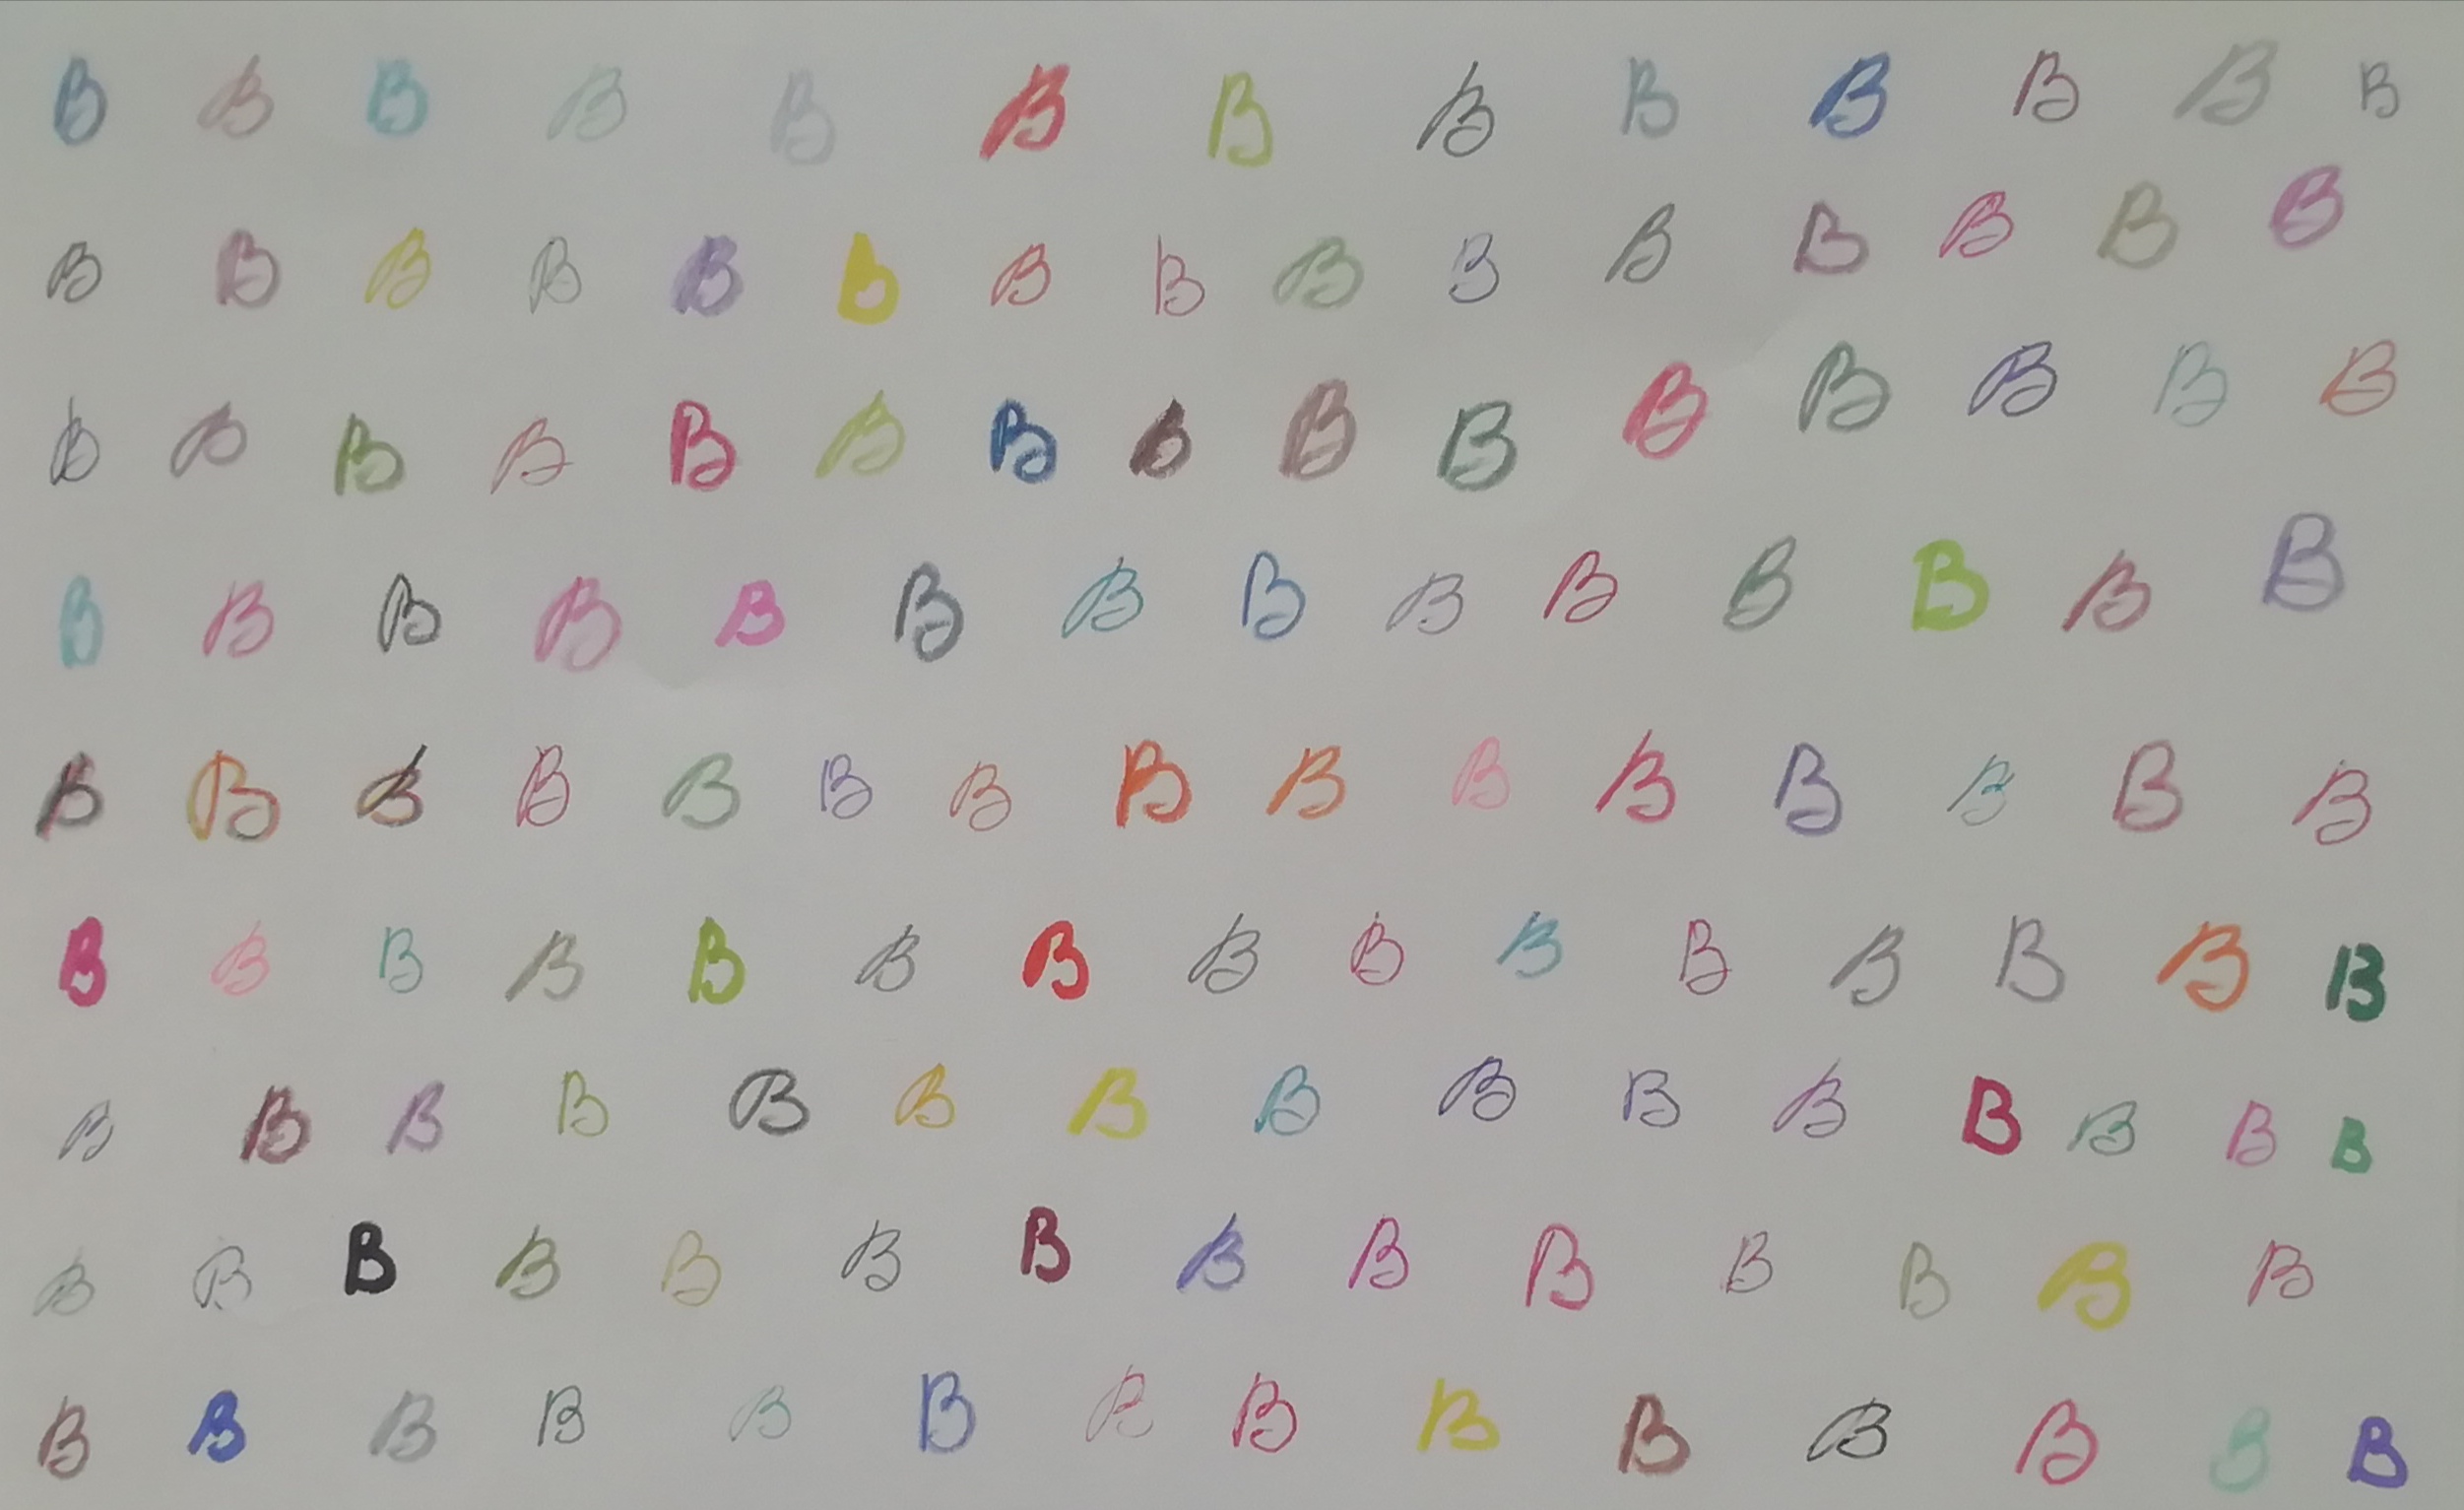 B B B B B B B B B B B B B
B B B B B b B B B B B B B B B
B B B B B B B B B B B B B B B
B B B B B B B B B B B B B B
B B B B B B B B B B B B B B B
B B B B B B B B B B B B B B B
B B B B B B B B B B B B B B B
B B B B B B B B B B B B B B
B B B B B B B B B B B B B B